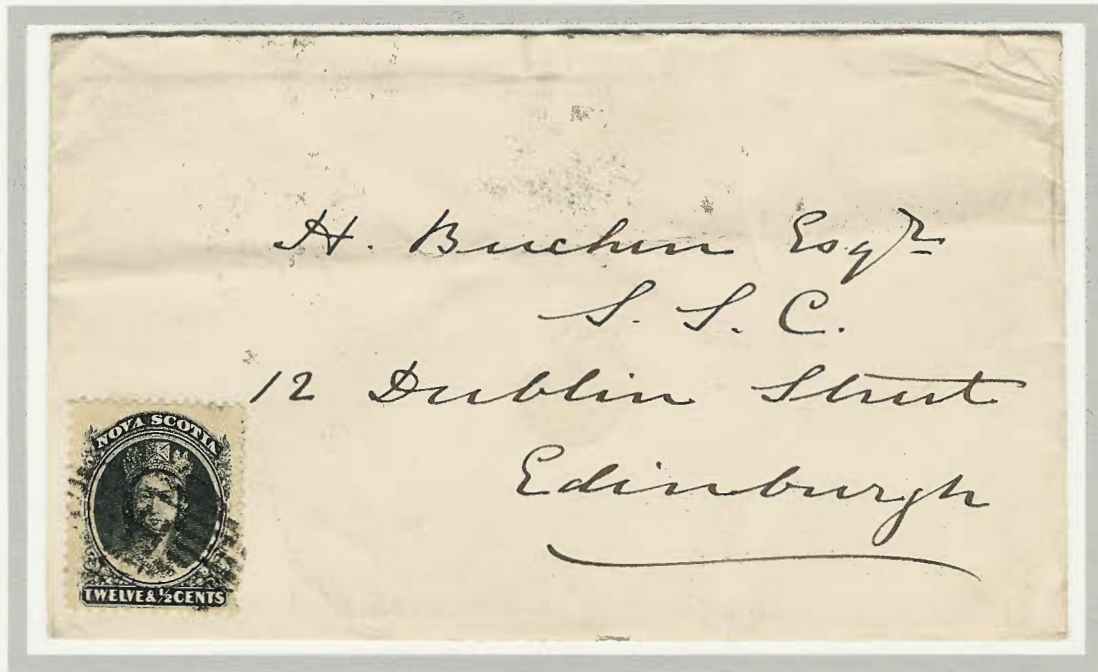 H. Buchan Esqr
S. S. C.
12 Dublin Street
Edinburgh
NOVA SCOTIA
TWELVE & ½ CENTS